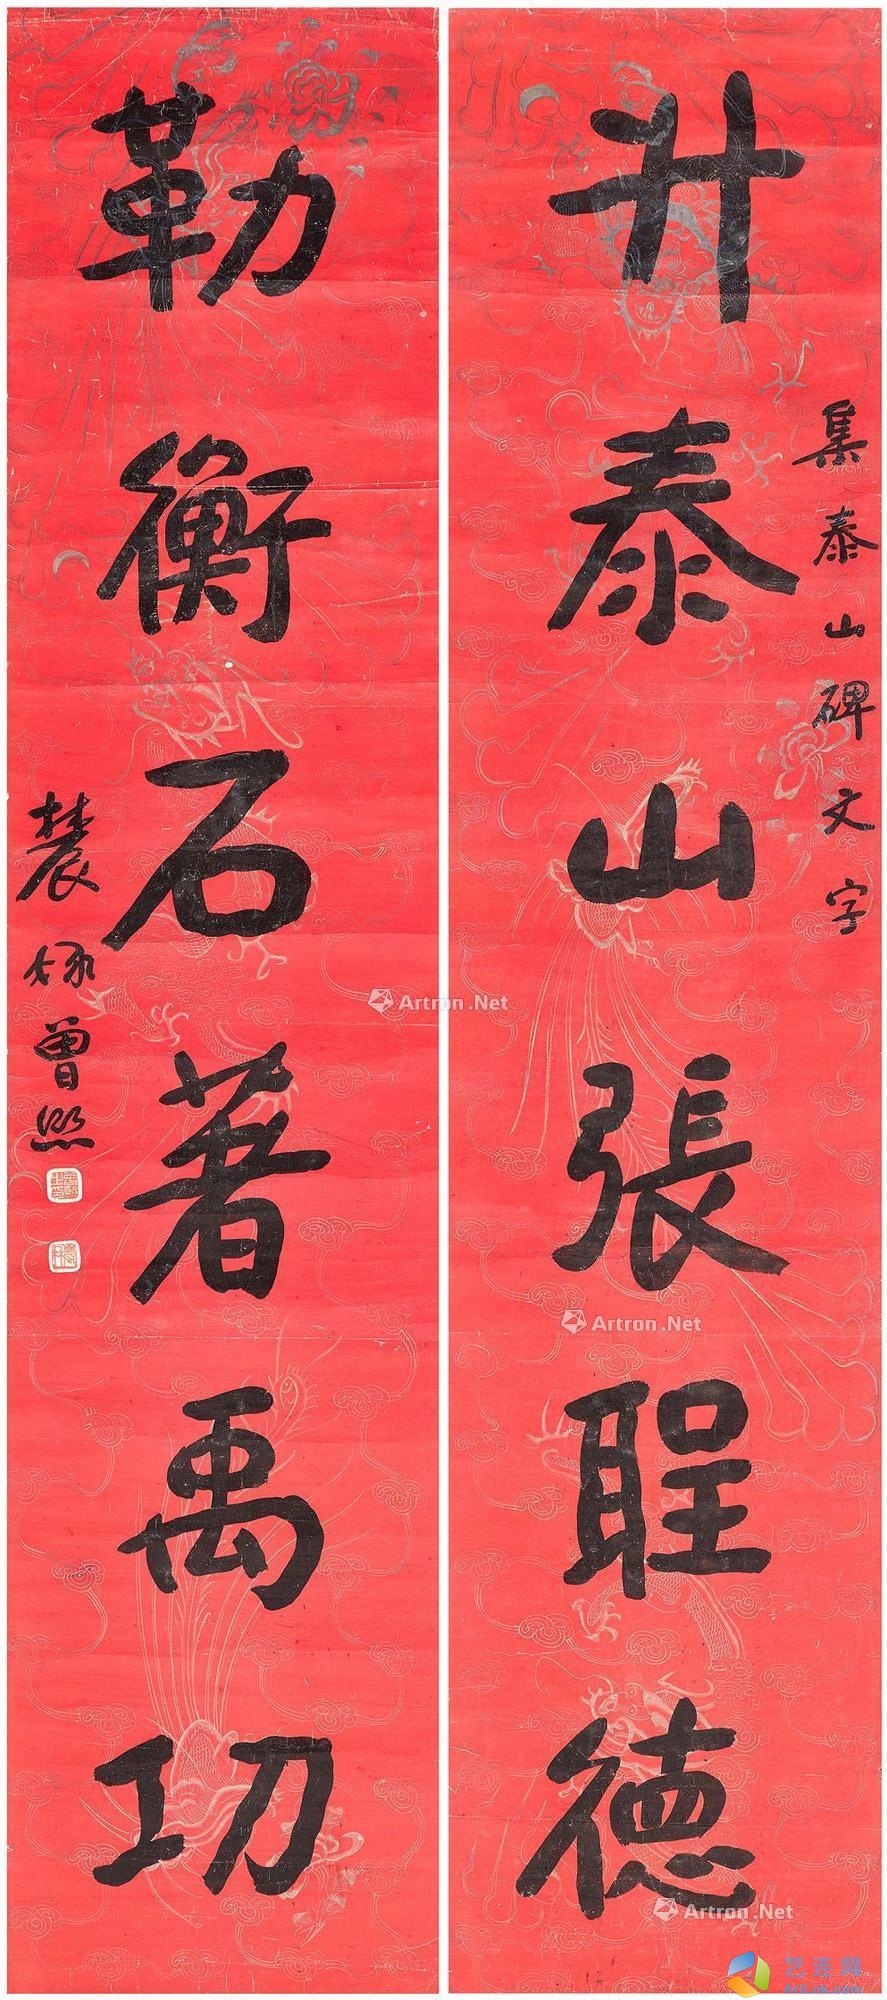 升泰山張聖德
集泰山碑文字
勒衡石著禹功
農髯曾熙
Artron.Net
Artron.Net
Artron.Net
艺连网